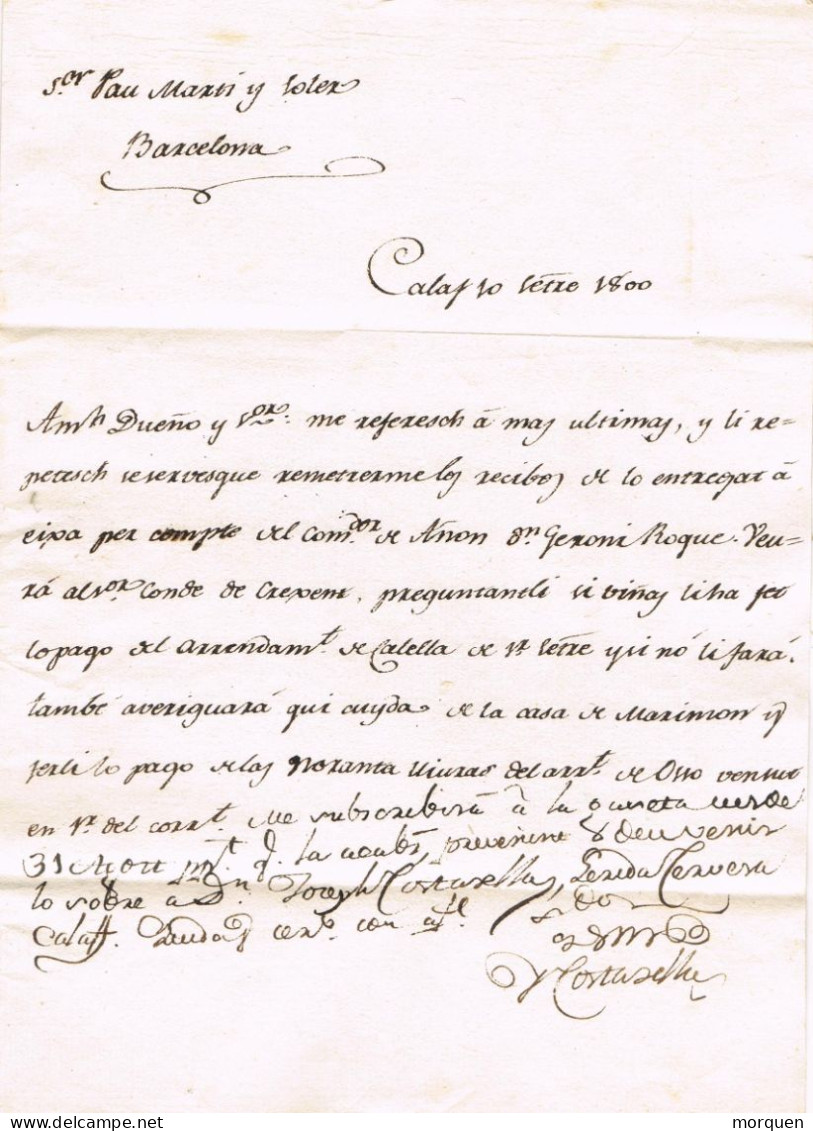 S.or Pau Marti y Soler
Barcelona
Calaf 10 Setre 1800
Am.h Dueño y S.or: me referesch á mas ultimas, y li re=
petesch se servesque remetrerme los recibos de lo entregat á
eixa per compte del Com.dor de Añon D.n Geroni Roque. Veu=
rá al S.or Conde de Crexent, preguntantli si viñas li ha fet
lo pago del arrendam.t de Calella de p.r Setre y si nó li fará.
també averiguará qui cuyda de la casa de Marimon y p
ferli lo pago de las Noranta lliuras del arr.t de Osso vensut
en p.r del corr.t. Me subscribirá á la Gaseta des de
31 Agost prevenint deu venir
lo sobre á D.n Joseph Costasella, Lerida Cervera
Calaf.
y Costasella
morquen